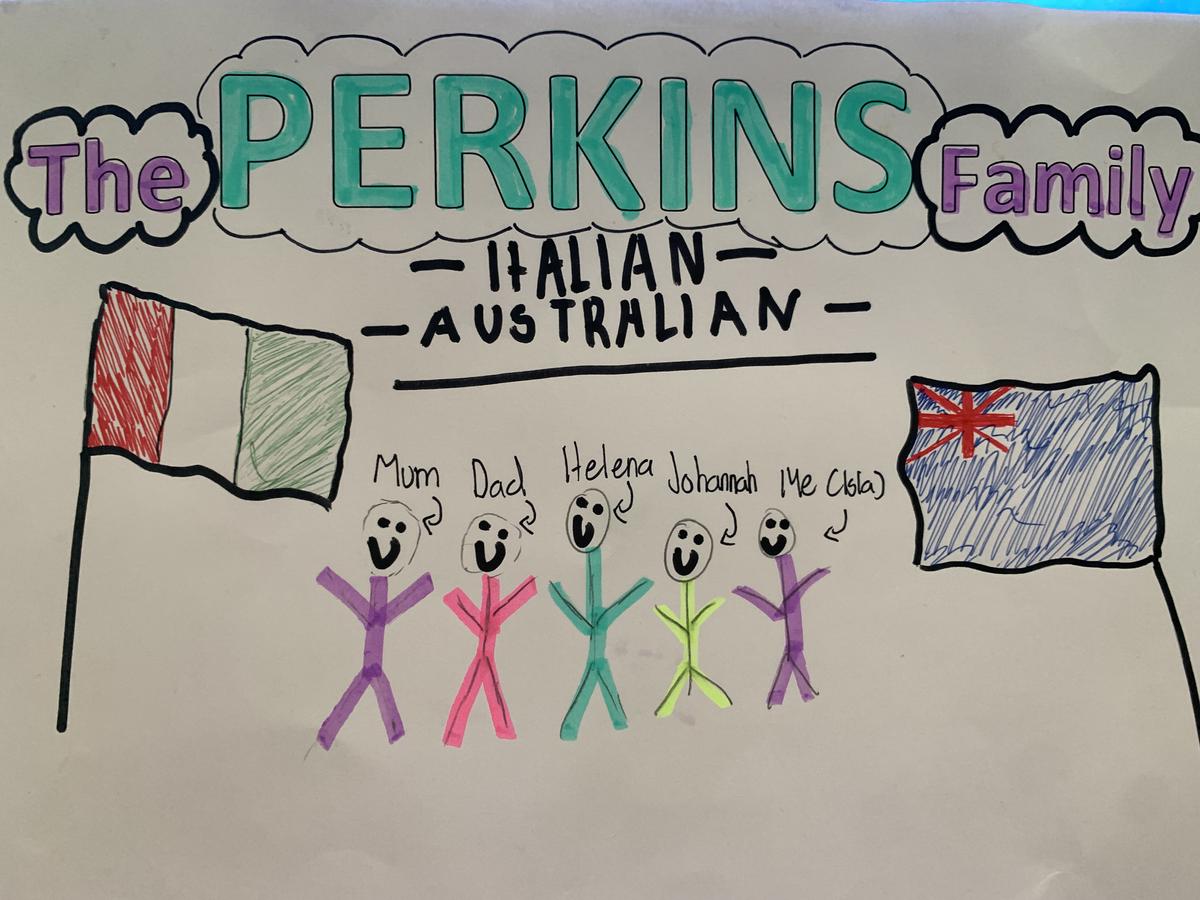 The PERKINS Family
- ITALIAN -
- AUSTRALIAN -
Mum Dad Helena Johannah Me (Isla)